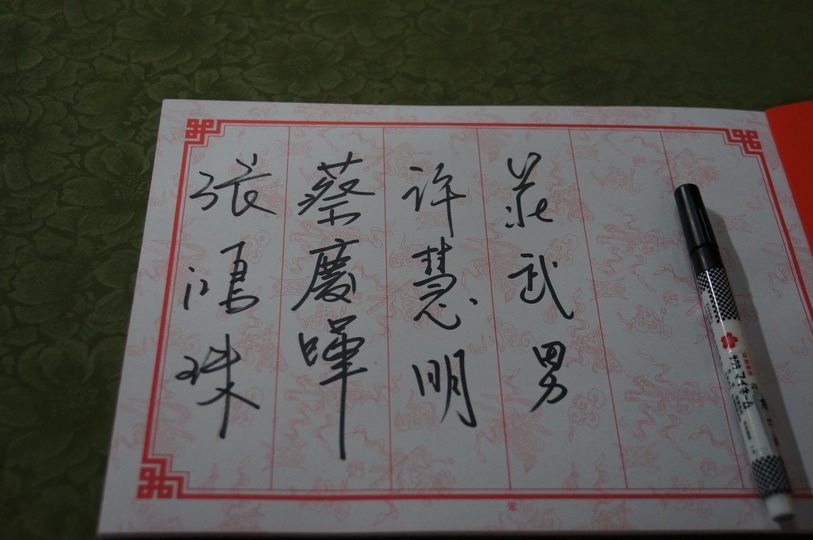 莊武男
許慧明
蔡慶暉
張鴻珠